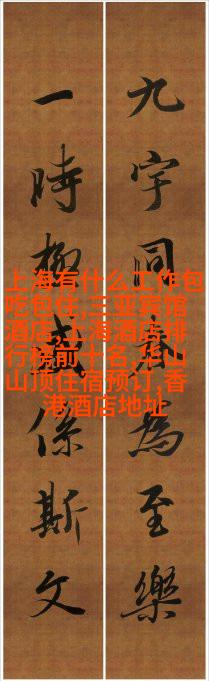 九宇同為至樂
一時極盛係斯文
上海有什么工作包
吃包住,三亚宾馆
酒店,上海酒店排
行榜前十名,华山
山顶住宿预订,香
港酒店地址